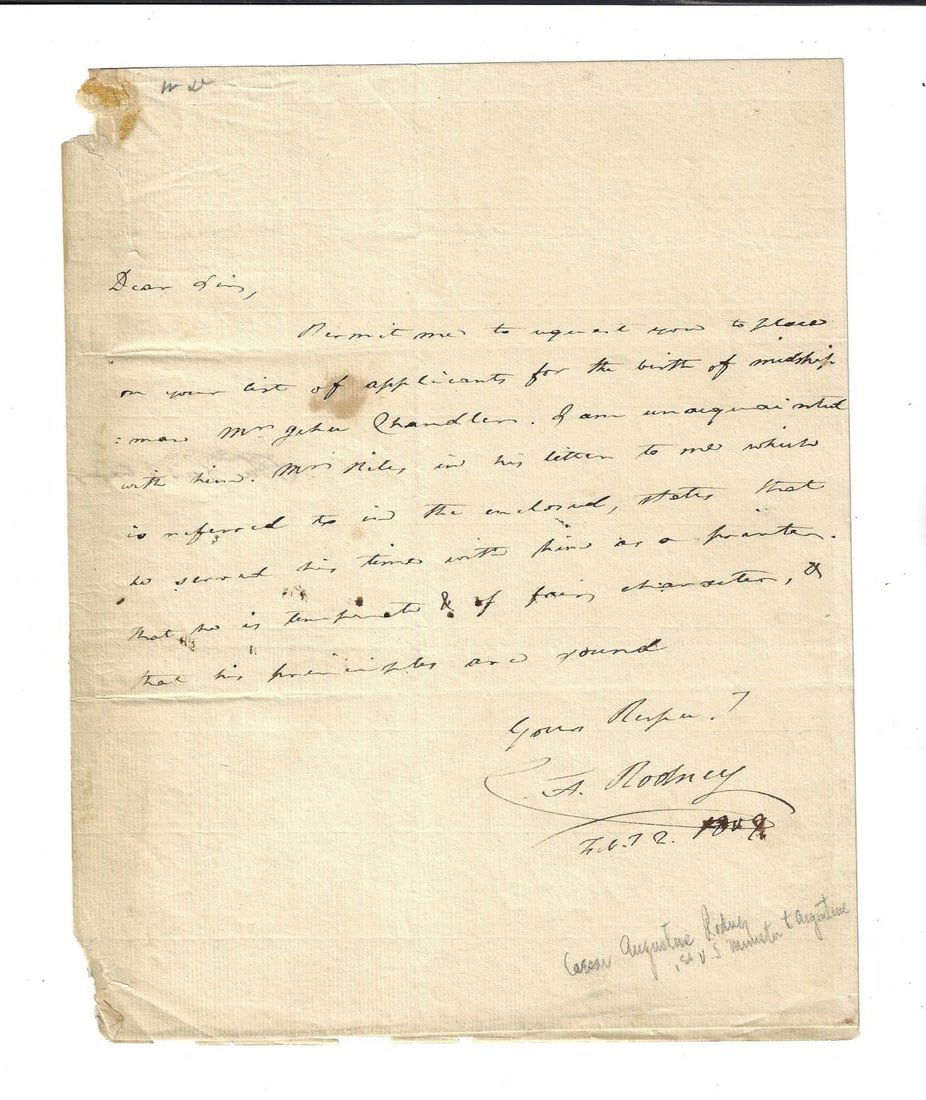 Dear Sir,
Permit me to request you to place
on your list of applicants for the birth of midship
:man Mr Chandler. I am unacquainted
with him. Mr Niles, in his letter to me which
is referred to in the enclosed, states that
he served his time with him as a printer.
that he is temperate & of fair character, &
that his principles are sound
Yours Respec.
C. A. Rodney
Feb. 12. 1809
Caesar Augustine Rodney
1st U.S Minister to Argentine